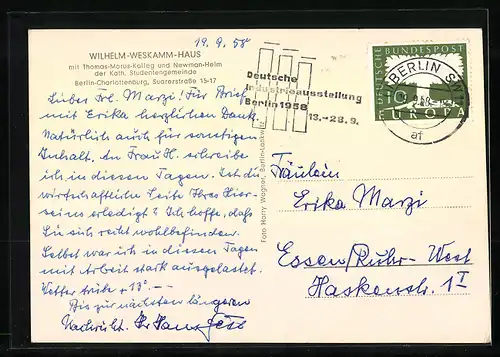 19.9.58
WILHELM-WESKAMM-HAUS
mit Thomas-Morus-Kolleg und Newman-Heim
der Kath. Studentengemeinde
Berlin-Charlottenburg, Suarezstraße 15-17
Lieber Frl. Marzi! Für Brief
mit Erika herzlichen Dank.
Natürlich auch für sonstigen
Inhalt. An Frau H. schreibe
ich in diesen Tagen. Ist die
wirtschaftliche Seite Ihres Hier-
seins erledigt? Ich hoffe, daß
Sie sich recht wohlbefinden.
Selbst war ich in diesen Tagen
mit Arbeit stark ausgelastet.
Wetter trübe + 13°. —
Bis zur nächsten längeren
Nachricht. Ihr Hans
Foto Harry Wagner, Berlin-Lankwitz
Deutsche
Industrieausstellung
Berlin 1958
13.-28.9.
BERLIN SW
af
DEUTSCHE BUNDESPOST
10
EUROPA
Fräulein
Erika Marzi
Essen/Ruhr-West
Haskenstr. 1 I